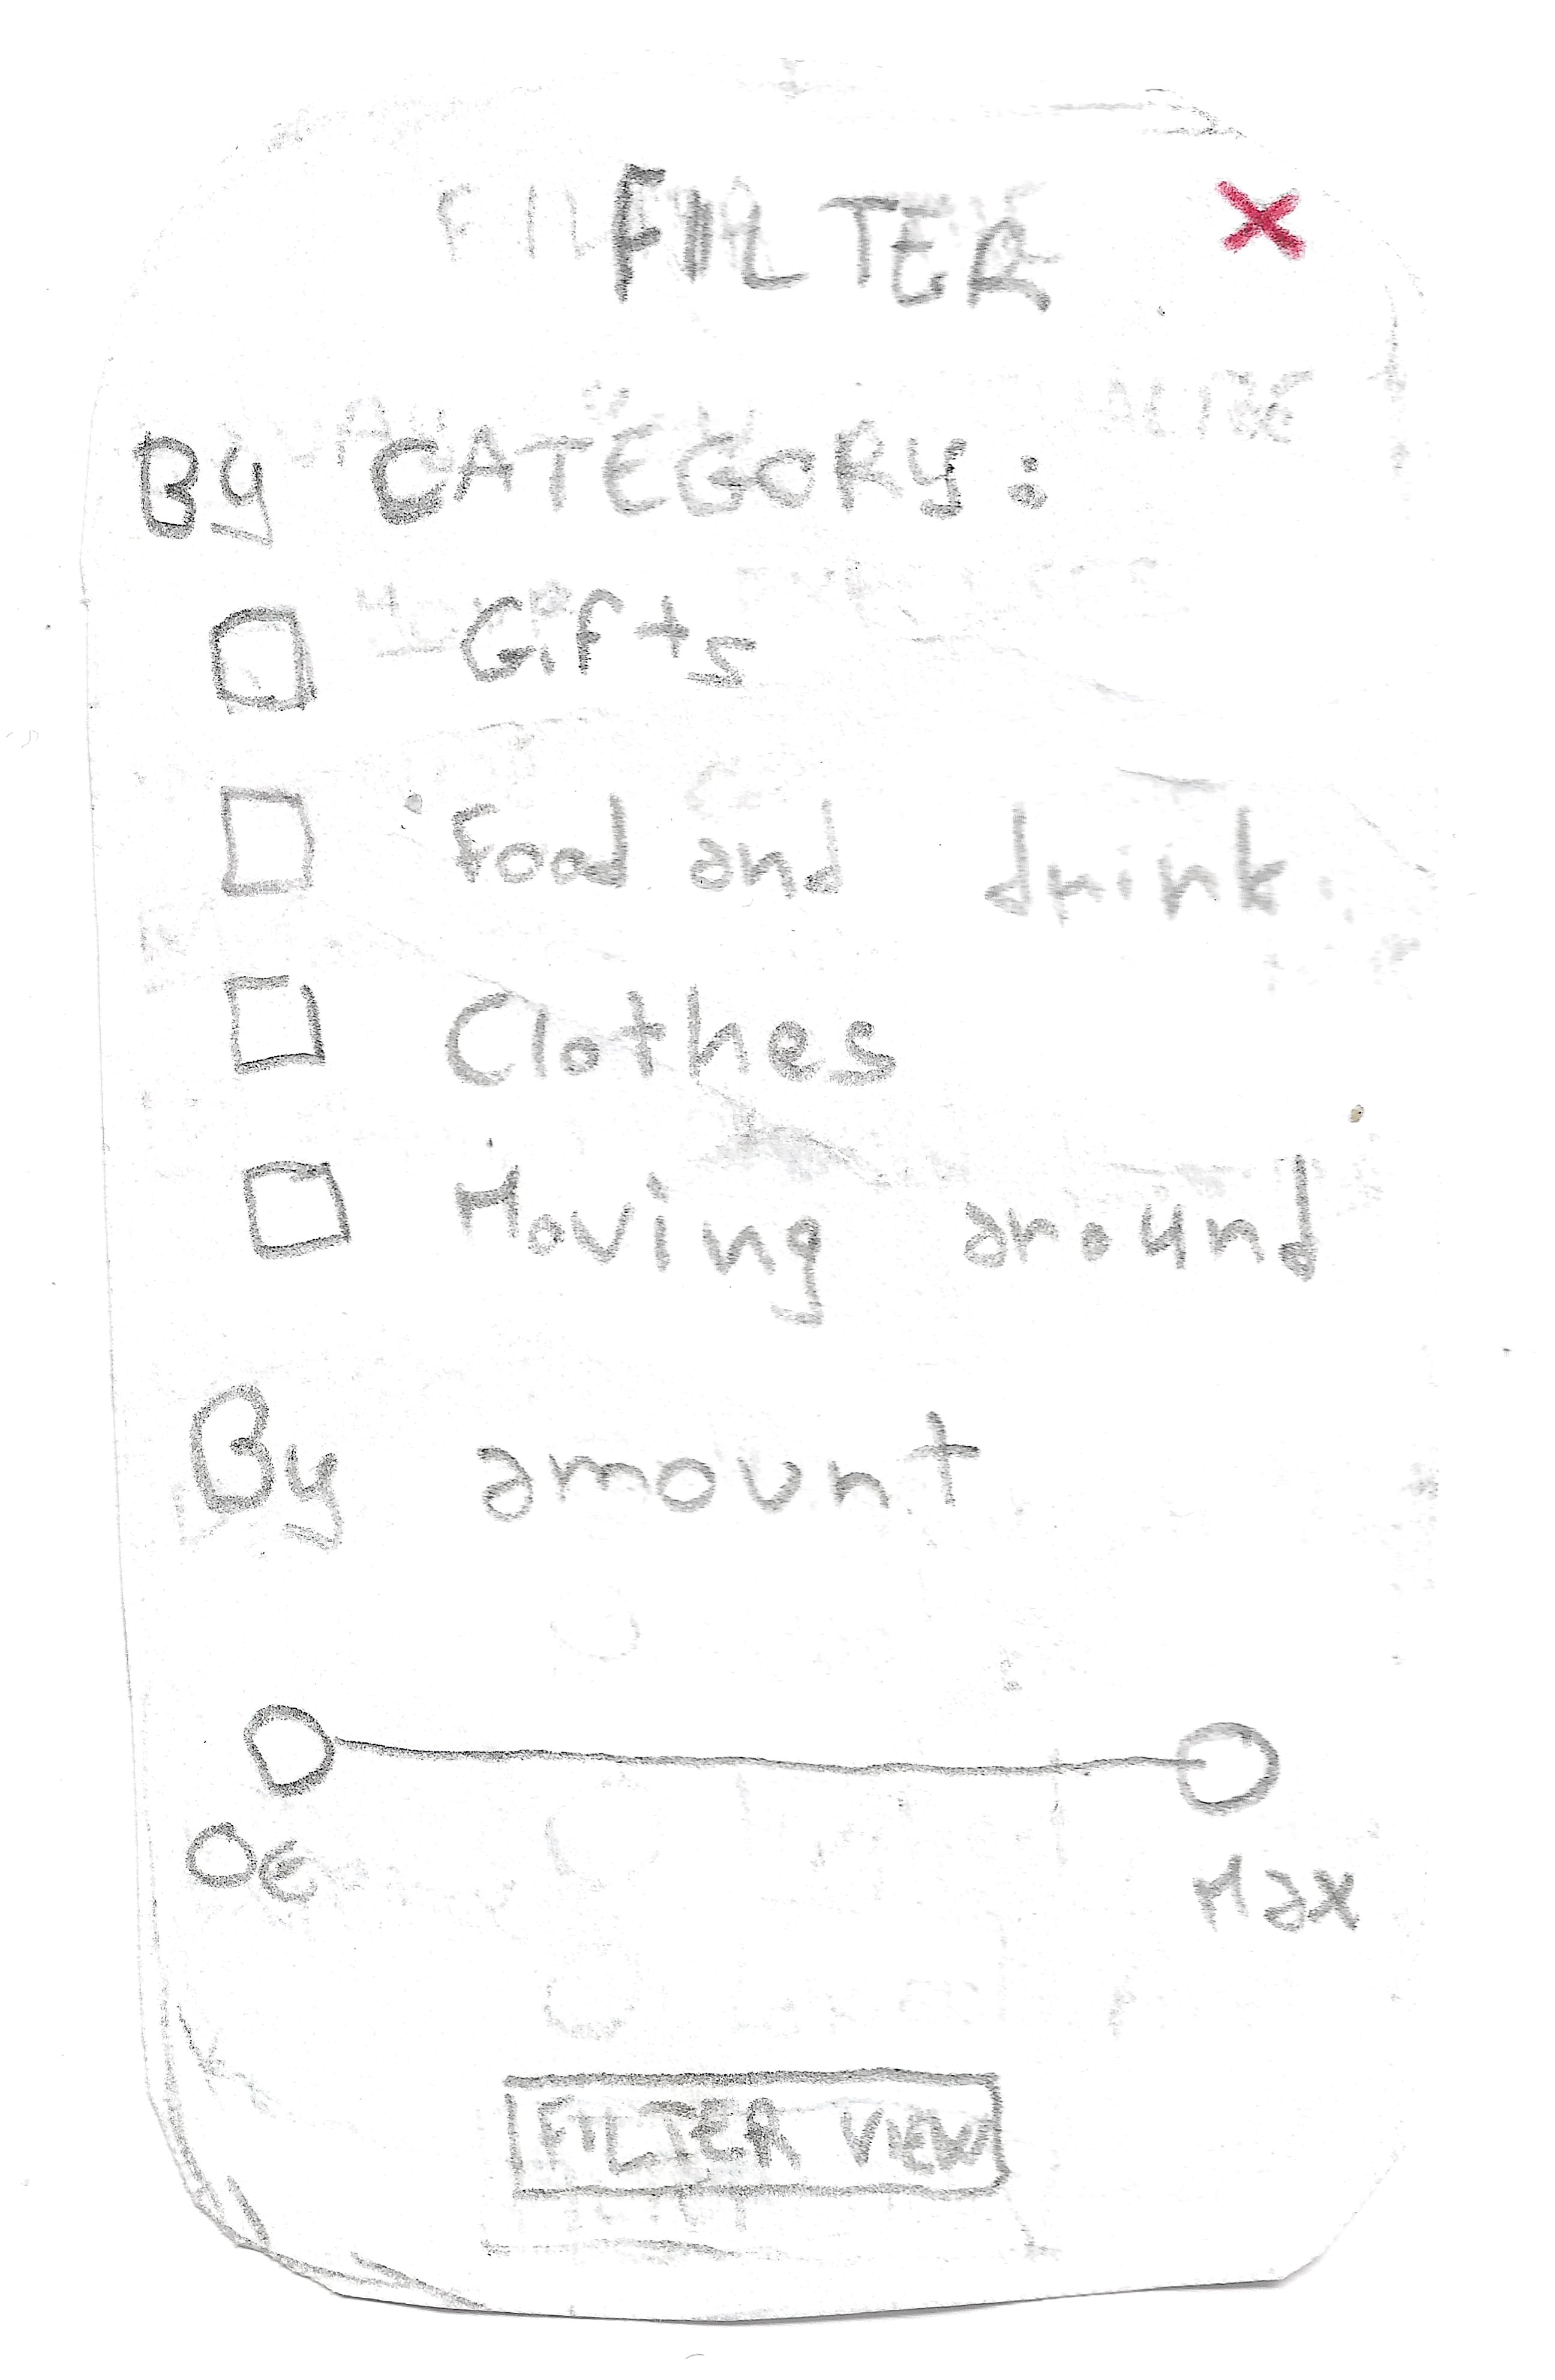 FILTER
By CATEGORY:
Gifts
Food and drink
Clothes
Moving around
By amount
0€ Max
FILTER VIEW